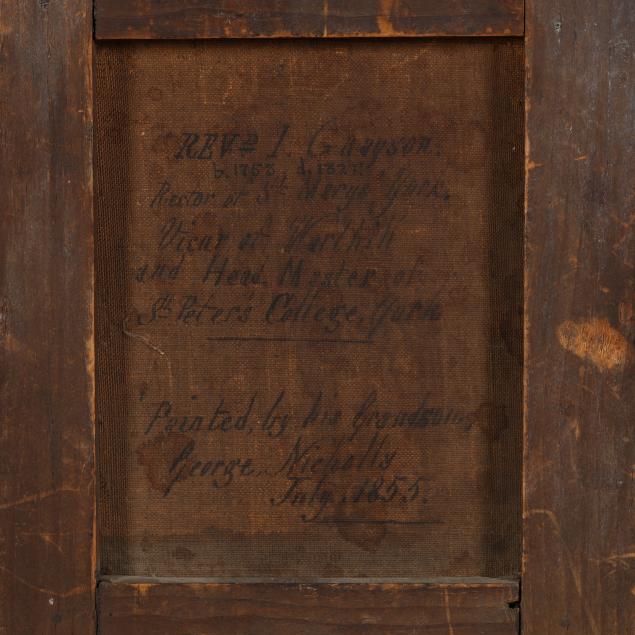 REVD I. Grayson.
b. 1753, d.
Rector of St Marys York.
Vicar of Warthill
and Head Master of
St Peter's College, York
Painted, by his Grandson,
George. Nicholls
July. 1855.